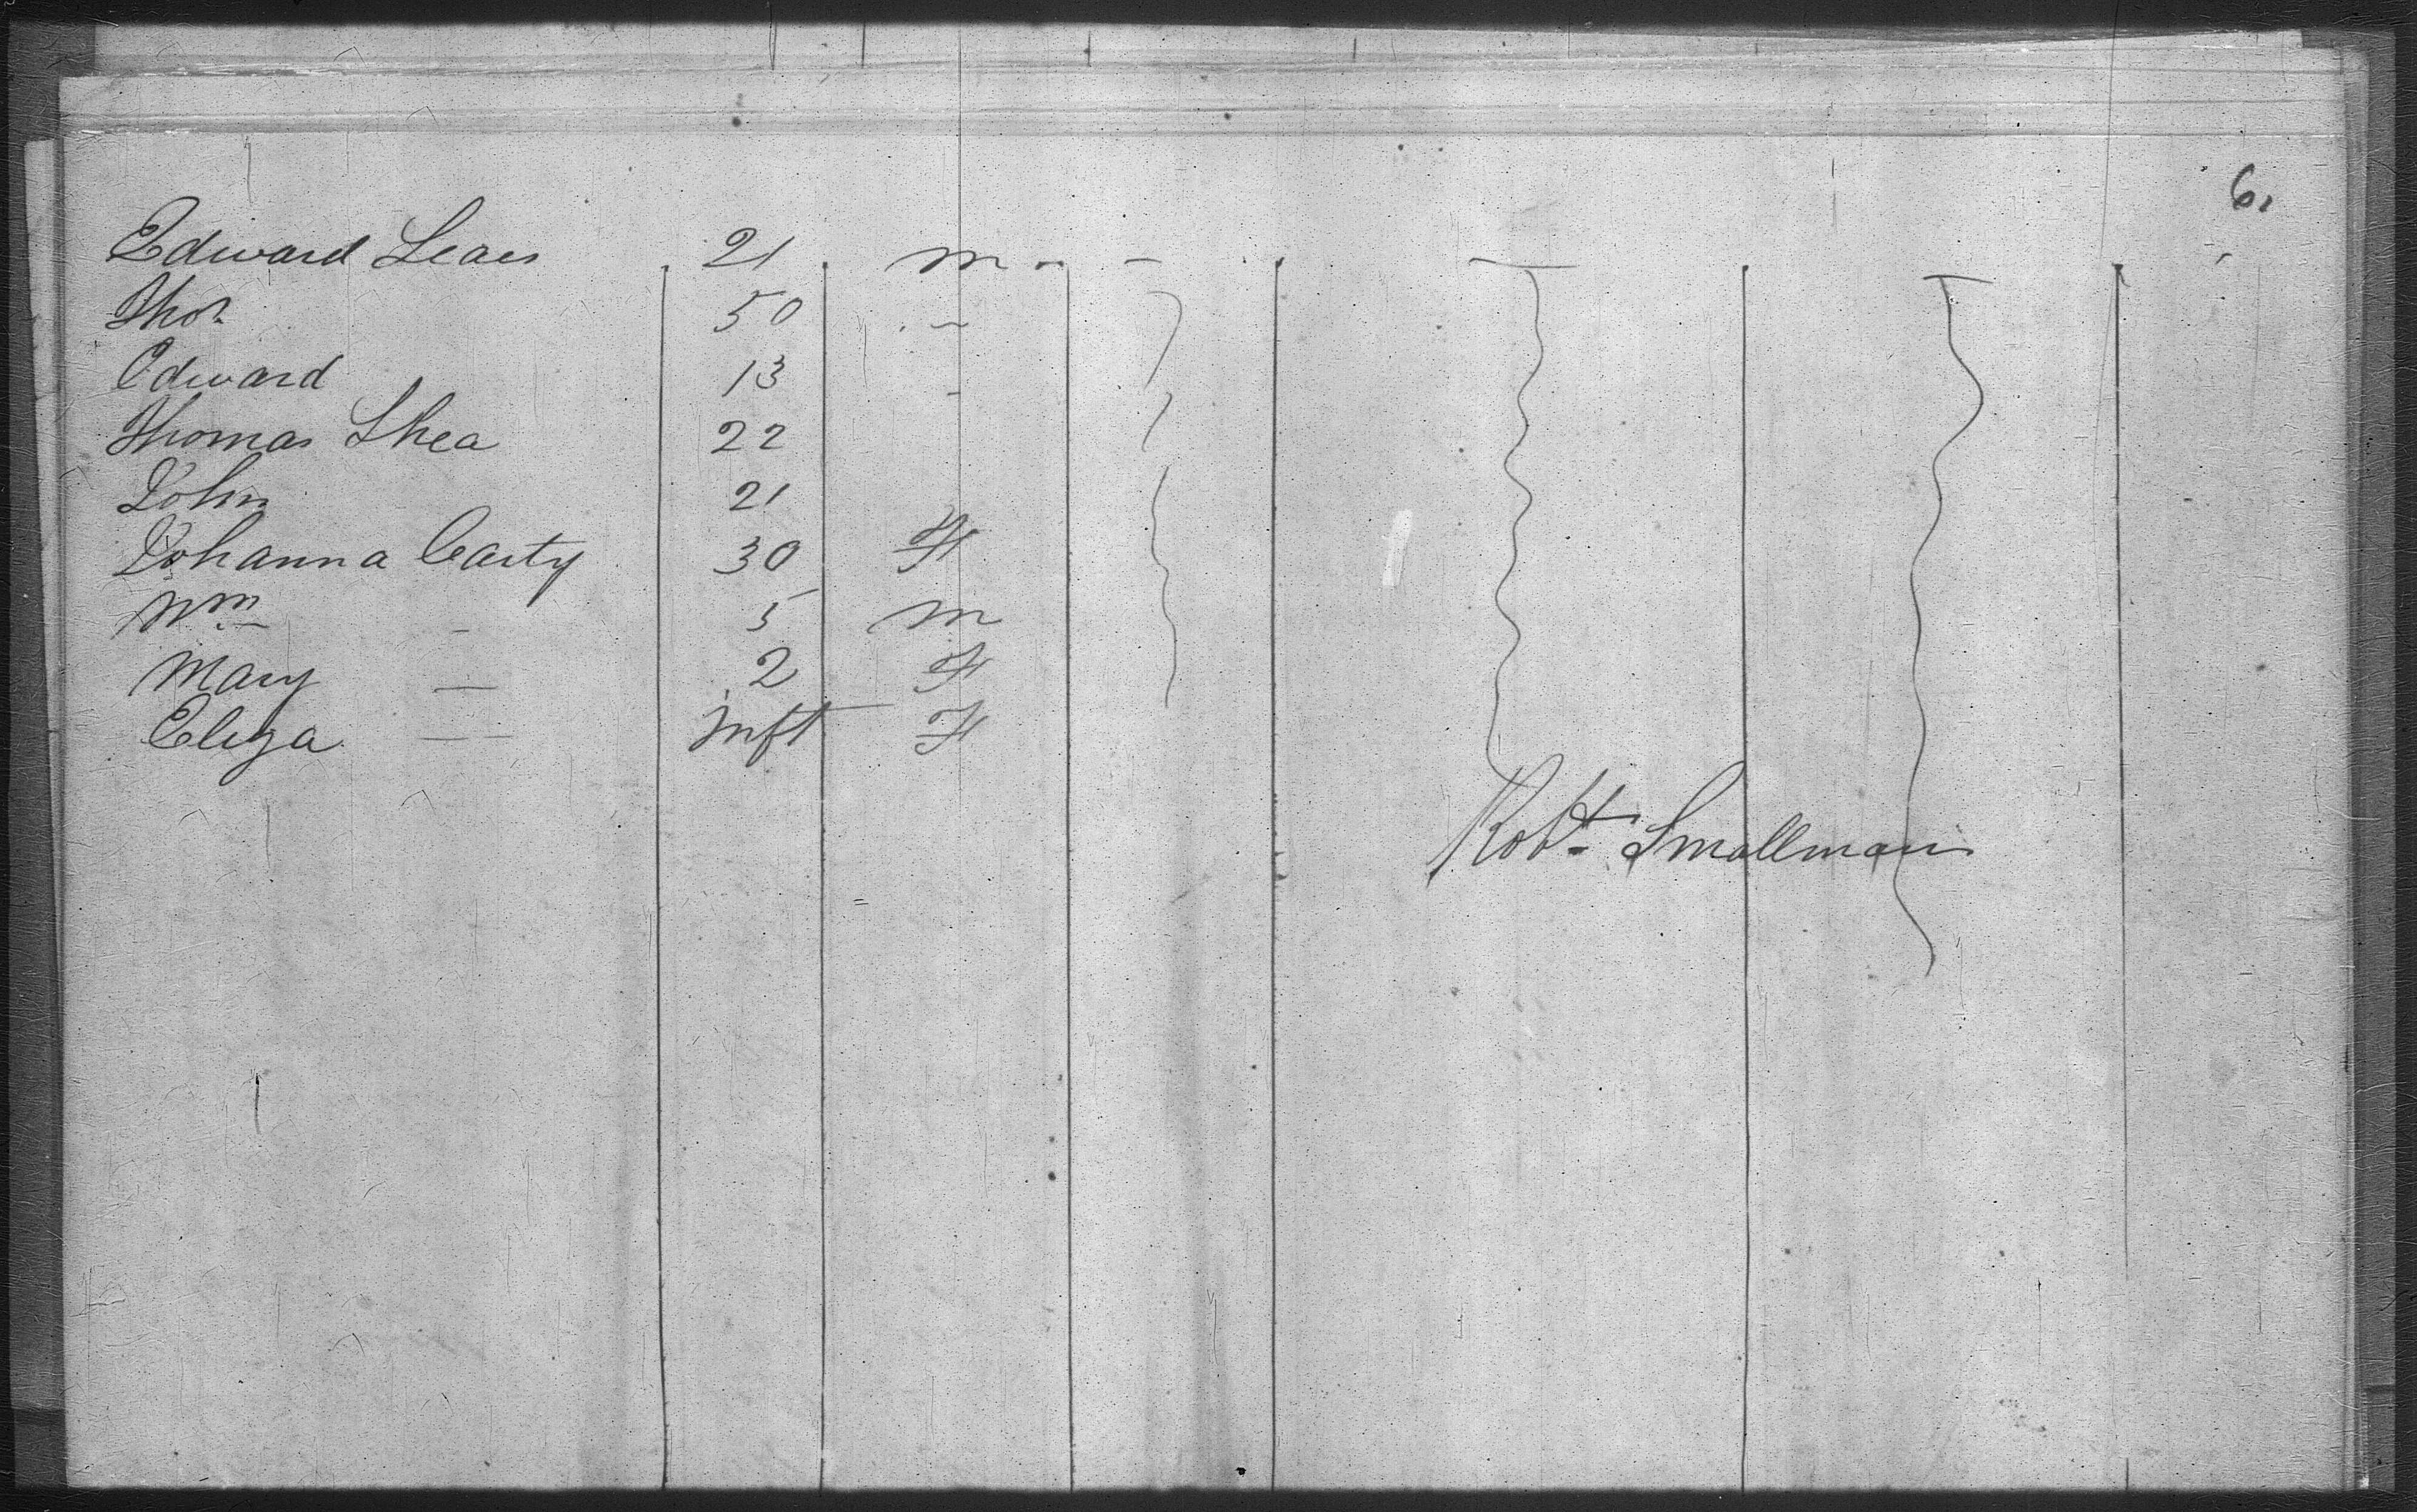 6.
Edward Leaes 21 m - -
Thos 50 -
Edward 13 -
Thomas Shea 22
John 21
Johanna Carty 30 F
Wm - 5 m
Mary - 2 F
Eliza - inft F
Robt Smallman